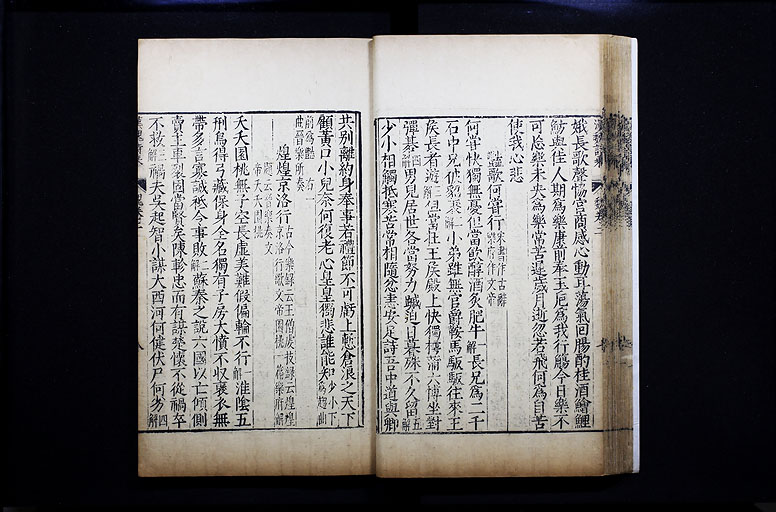 娥長歌聲協宮商感心動耳蕩氣回腸酌桂酒鱠鯉
魴與佳人期為樂康前奉玉卮為我行觴今日樂不
可忘樂未央為樂常苦遲歲月逝忽若飛何為自苦
使我心悲
豔歌何嘗行
何嘗快獨無憂但當飲醇酒炙肥牛一解長兄為二千
石中兄被貂裘二解小弟雖無官爵鞍馬馺馺往來王
侯長者遊三解但當在王侯殿上快獨摴蒲六博坐對
彈棊四解男兒居世各當努力蹙迫日暮殊不久留五解
少小相觸抵寒苦常相隨忿恚安足諍吾中道與卿
共別離約身奉事君禮節不可虧上慙倉浪之天下
顧黃口小兒柰何復老心皇皇獨悲誰能知少小下為趨曲
前為豔
右一曲晉樂所奏
煌煌京洛行
夭夭園桃無子空長虛美難假偏輪不行一解淮陰五
刑鳥得弓藏保身全名獨有子房大憤不收褒衣無
帶多言寡誠祗令事敗二解蘇秦之說六國以亡傾側
賣主車裂固當賢矣陳軫忠而有謀楚懷不從禍卒
不救三解禍夫吳起智小謀大西河何健伏尸何劣四解